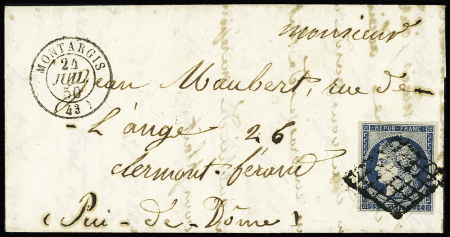 monsieur
MONTARGIS
24
JUIL.
50
(43)
Jean Maubert, rue de
L'ange 26
clermont-ferand
(Pui-de-Dôme)
REPUB. FRANC.